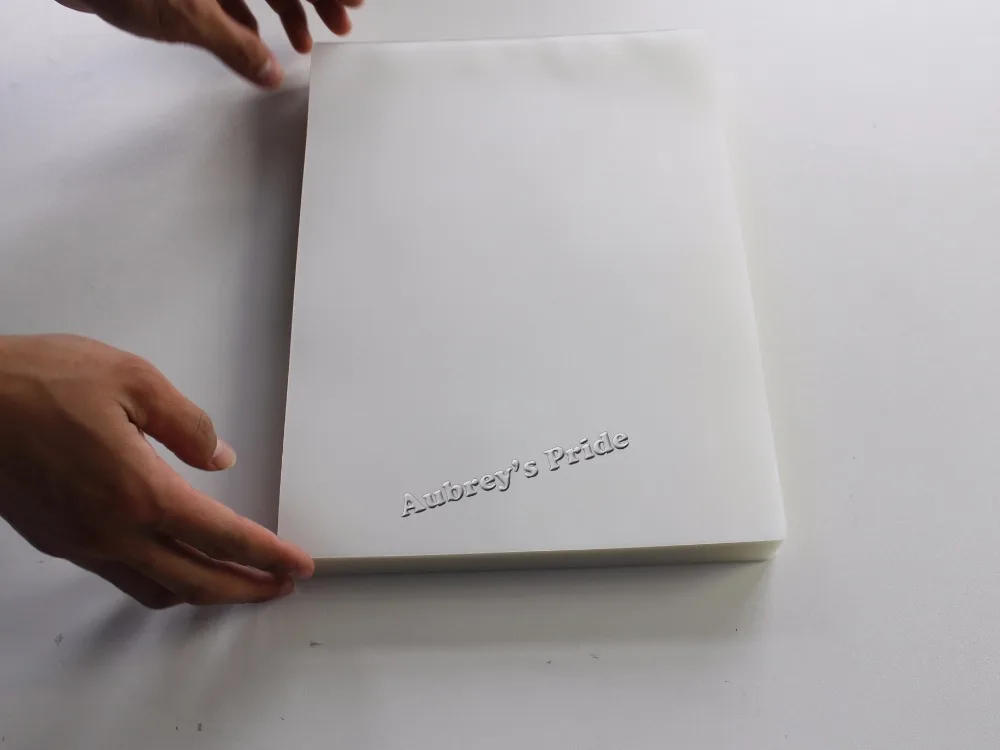 Aubrey's Pride